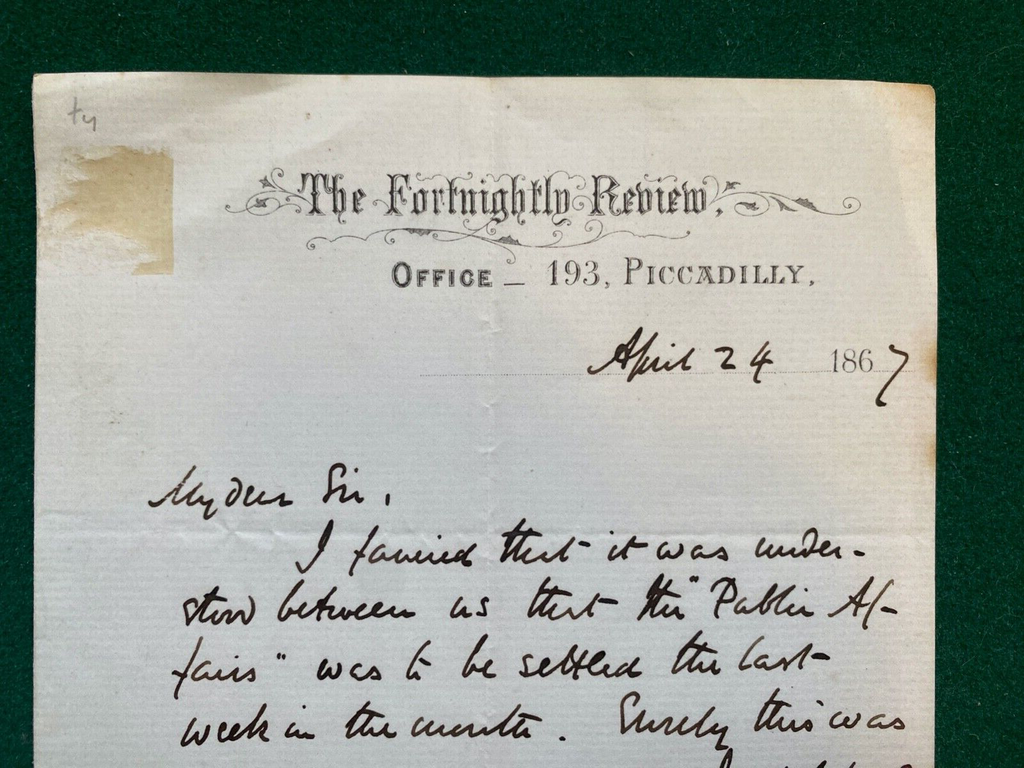 ty
The Fortnightly Review.
OFFICE – 193, PICCADILLY,
April 24 1867
My dear Sir,
I fancied that it was under-
stood between us that the "Public Af-
fairs" was to be settled the last
week in the month. Surely this was